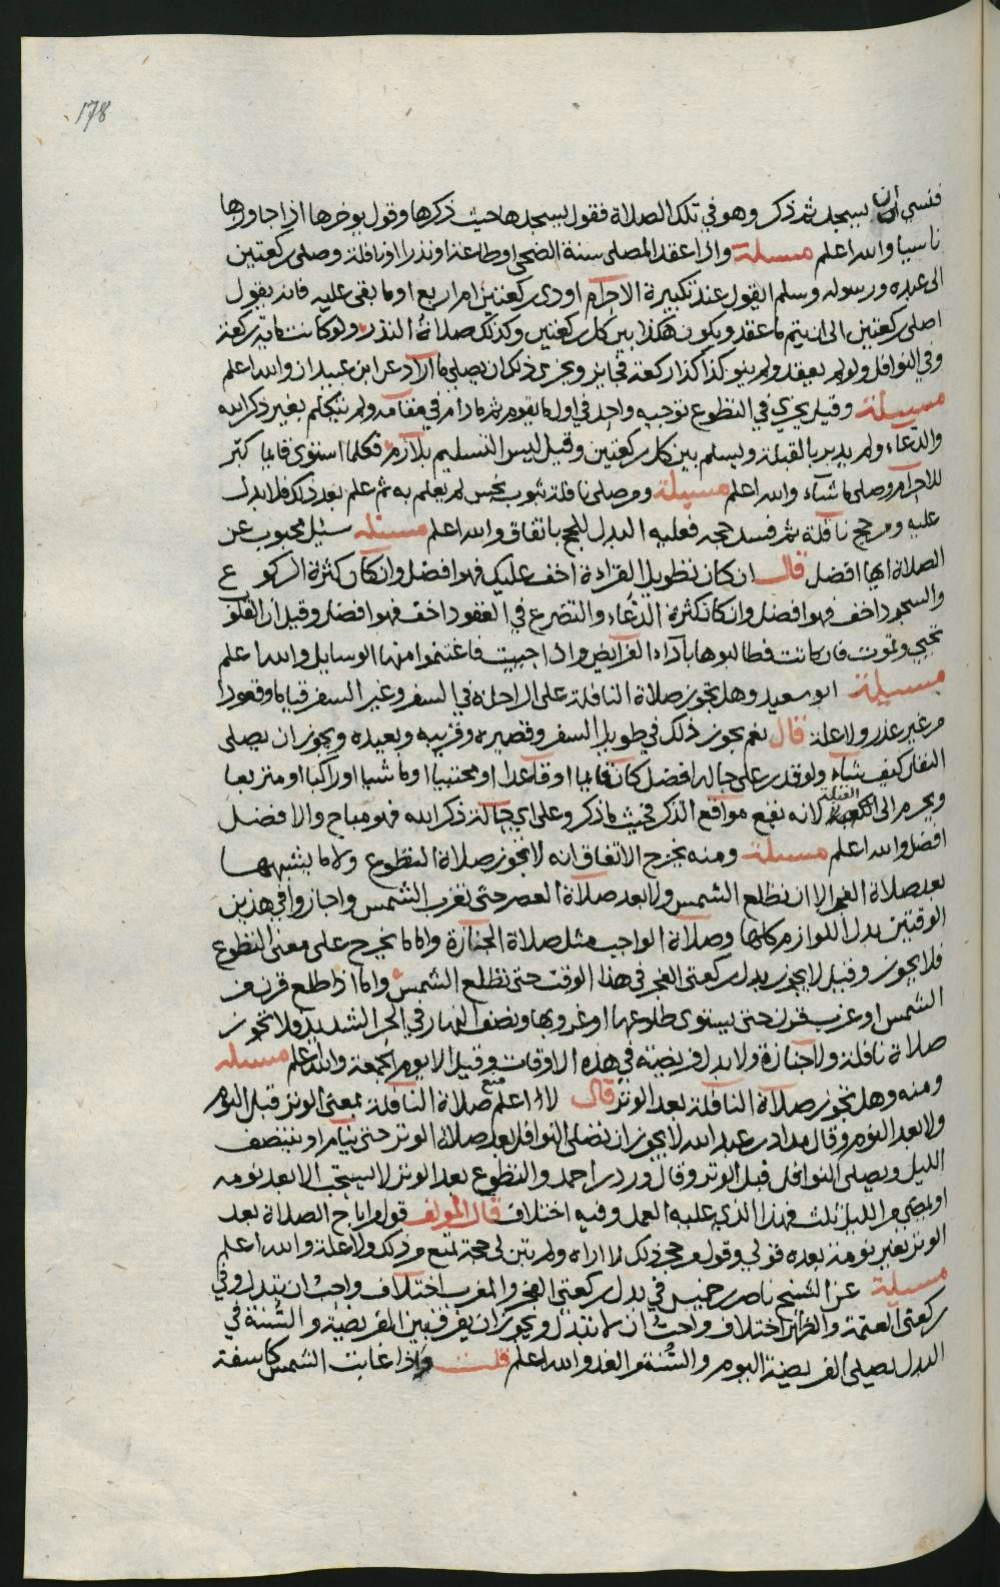 178
فنسي ان يسجد ثم ذكر وهو في تلك الصلاة فقول يسجدها حيث ذكرها وقول يوخرها اذا جاوزها
ناسيا والله اعلم مسئلة واذا عقد المصلي سنة الضحى او طاعة او نذرا او نافلة وصلى ركعتين
الى عبده ورسوله وسلم القول عند تكبيرة الاحرام اودي ركعتين ام اربع او ما بقى عليه فانه يقول
اصلي ركعتين الى ان يتم ما عقد ويكون هكذا بين كل ركعتين وكذلك صلاة النذر ولو كانت ماية ركعة
وفي النوافل ولو لم يعقد ولم ينو كذا كذا ركعة فجايز ويجزي ذلك ان يصلي ما اراد عن ابن عبيدان والله اعلم
مسيلة وقيل يجزي في التطوع توجيه واحد في اول ما يقوم ثم ما دام في مقامه ولم يتكلم بغير ذكر الله
والدعاء ولم يدبر بالقبلة ويسلم بين كل ركعتين وقيل ليس التسليم بلازم فكلما استوى قايما كبر
للاحرام وصلى ما شاء والله اعلم مسيلة ومن صلى نافلة بثوب نجس لم يعلم به ثم علم بعد ذلك فلا بدل
عليه ومن حج نافلة ثم فسد حجه فعليه البدل للحج باتفاق والله اعلم مسئله سئل محبوب عن
الصلاة ايها افضل قال ان كان تطويل القراءة اخف عليك فهو افضل وان كان كثرة الركوع
والسجود اخف فهو افضل وان كان كثرة الدعاء والتضرع في القعود اخف فهو افضل وقيل ان القلوب
تحيى وتموت فان ماتت فطالبوها باداء الفرايض واذا حييت فاغتنموا منها الوسايل والله اعلم
مسيلة ابو سعيد وهل تجوز صلاة النافلة على الراحلة في السفر وغير السفر قياما وقعودا
من غير عذر ولا علة قال نعم يجوز ذلك في طويل السفر وقصيره وقريبه وبعيده ويجوز ان يصلي
النفل كيف شاء ولو قدر على حاله افضل كان قايما او قاعدا او محتبيا او ماشيا او راكبا او متربعا
ويحرم الى القبلة لانه يقع مواقع الذكر فحيث ما ذكر وعلى اي حالة ذكر الله فهو مباح والافضل
افضل والله اعلم مسئلة ومنه يخرج الاتفاق انه لا تجوز صلاة التطوع ولا ما يشبهها
بعد صلاة الفجر الا ان تطلع الشمس ولا بعد صلاة العصر حتى تغرب الشمس واجازوا في هذين
الوقتين بدل اللوازم كلها وصلاة الواجب مثل صلاة الجنازة واما ما يخرج على معنى التطوع
فلا يجوز وقيل لا يجوز بدل ركعتي الفجر في هذا الوقت حتى تطلع الشمس واما اذا طلع قرن من
الشمس او غرب قرن حتى يستوى طلوعها او غروبها ونصف النهار في الحر الشديد فلا تجوز
صلاة نافلة ولا جنازة ولا بدل فريضة في هذه الاوقات وقيل الا يوم الجمعة والله اعلم مسئله
ومنه وهل تجوز صلاة النافلة بعد الوتر قال لا اعلم منع صلاة النافلة بمعنى الوتر قبل النوم
ولا بعد النوم وقال مداد بن عبد الله لا يجوز ان تصلى النوافل بعد صلاة الوتر حتى ينام او ينتصف
الليل ويصلى النوافل قبل الوتر وقال ورد بن احمد والتطوع بعد الوتر لا يستحب الا بعد نومه
او يمضي من الليل ثلث فهذا الذي عليه العمل وفيه اختلاف قال المولف قول من اباح الصلاة بعد
الوتر بغير نومة بعده قولي وقول من حجر ذلك لا اراه ولم يتبن لي حجة تمنع من ذلك ولا علة والله اعلم
مسيلة عن الشيخ ناصر بن خميس في بدل ركعتي الفجر والمغرب اختلاف واحب ان تبدل وفي
ركعتي العتمة والظهر اختلاف واحب ان لا تبدل ويجوز ان يفرق بين الفريضة والسنة في
البدل يصلى الفريضة اليوم والسنة من الغد والله اعلم قلت واذا غابت الشمس كاسفة